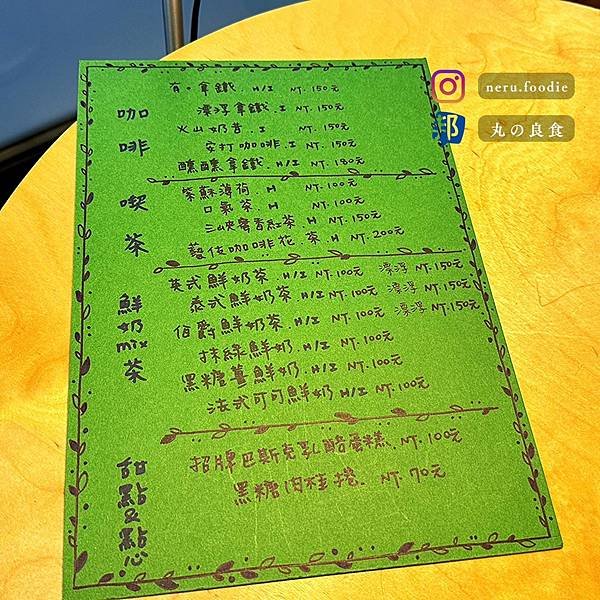 neru.foodie
邦
丸の良食
咖啡
有。拿鐵.H/I NT.150元
漂浮拿鐵.I NT.150元
火山奶昔.I NT.150元
安打咖啡.I NT.150元
醺醺拿鐵.H/I NT.180元
喫茶
紫蘇薄荷.H NT.100元
口氣茶.H NT.100元
三峽蜜香紅茶.H NT.150元
藝伎咖啡花.茶.H NT.200元
鮮奶mix茶
英式鮮奶茶.H/I NT.100元 漂浮 NT.150元
泰式鮮奶茶.H/I NT.100元 漂浮 NT.150元
伯爵鮮奶茶.H/I NT.100元 漂浮 NT.150元
抹綠鮮奶.H/I NT.100元
黑糖薑鮮奶.H/I NT.100元
法式可可鮮奶 H/I NT.100元
甜點&點心
招牌巴斯克乳酪蛋糕.NT.100元
黑糖肉桂捲.NT.70元